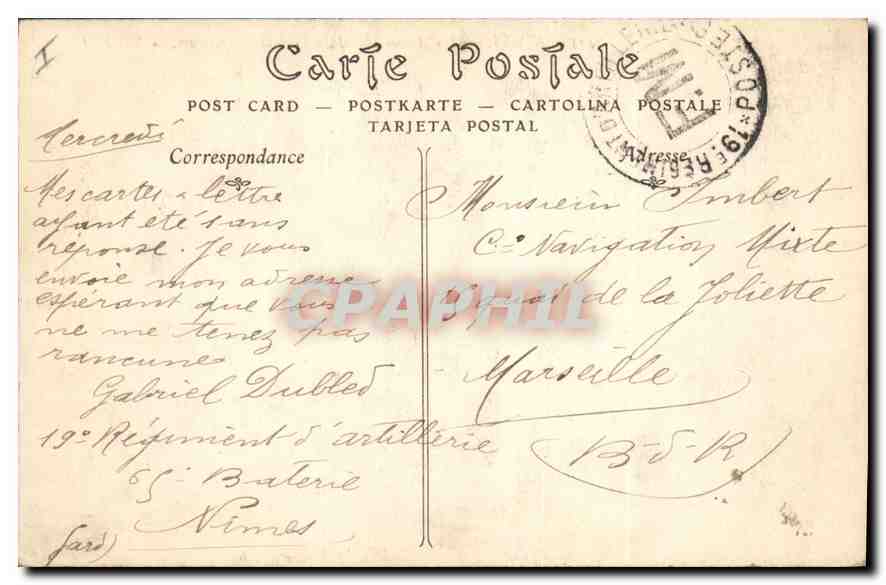 I
Carte Postale
POST CARD — POSTKARTE — CARTOLINA POSTALE
TARJETA POSTAL
Correspondance
Adresse
Mercredi
Mes cartes & lettre
ayant été sans
réponse. Je vous
envoie mon adresse
espérant que vous
ne me tenez pas
rancune
Gabriel Dubled
19e Régiment d'artillerie
65e Baterie
Nîmes
(Gard)
Monsieur Imbert
Cie Navigation Mixte
quai de la Joliette
Marseille
B-d-R
19E REGIMENT D'ARTILLERIE * POSTE
FM
CPAPHIL